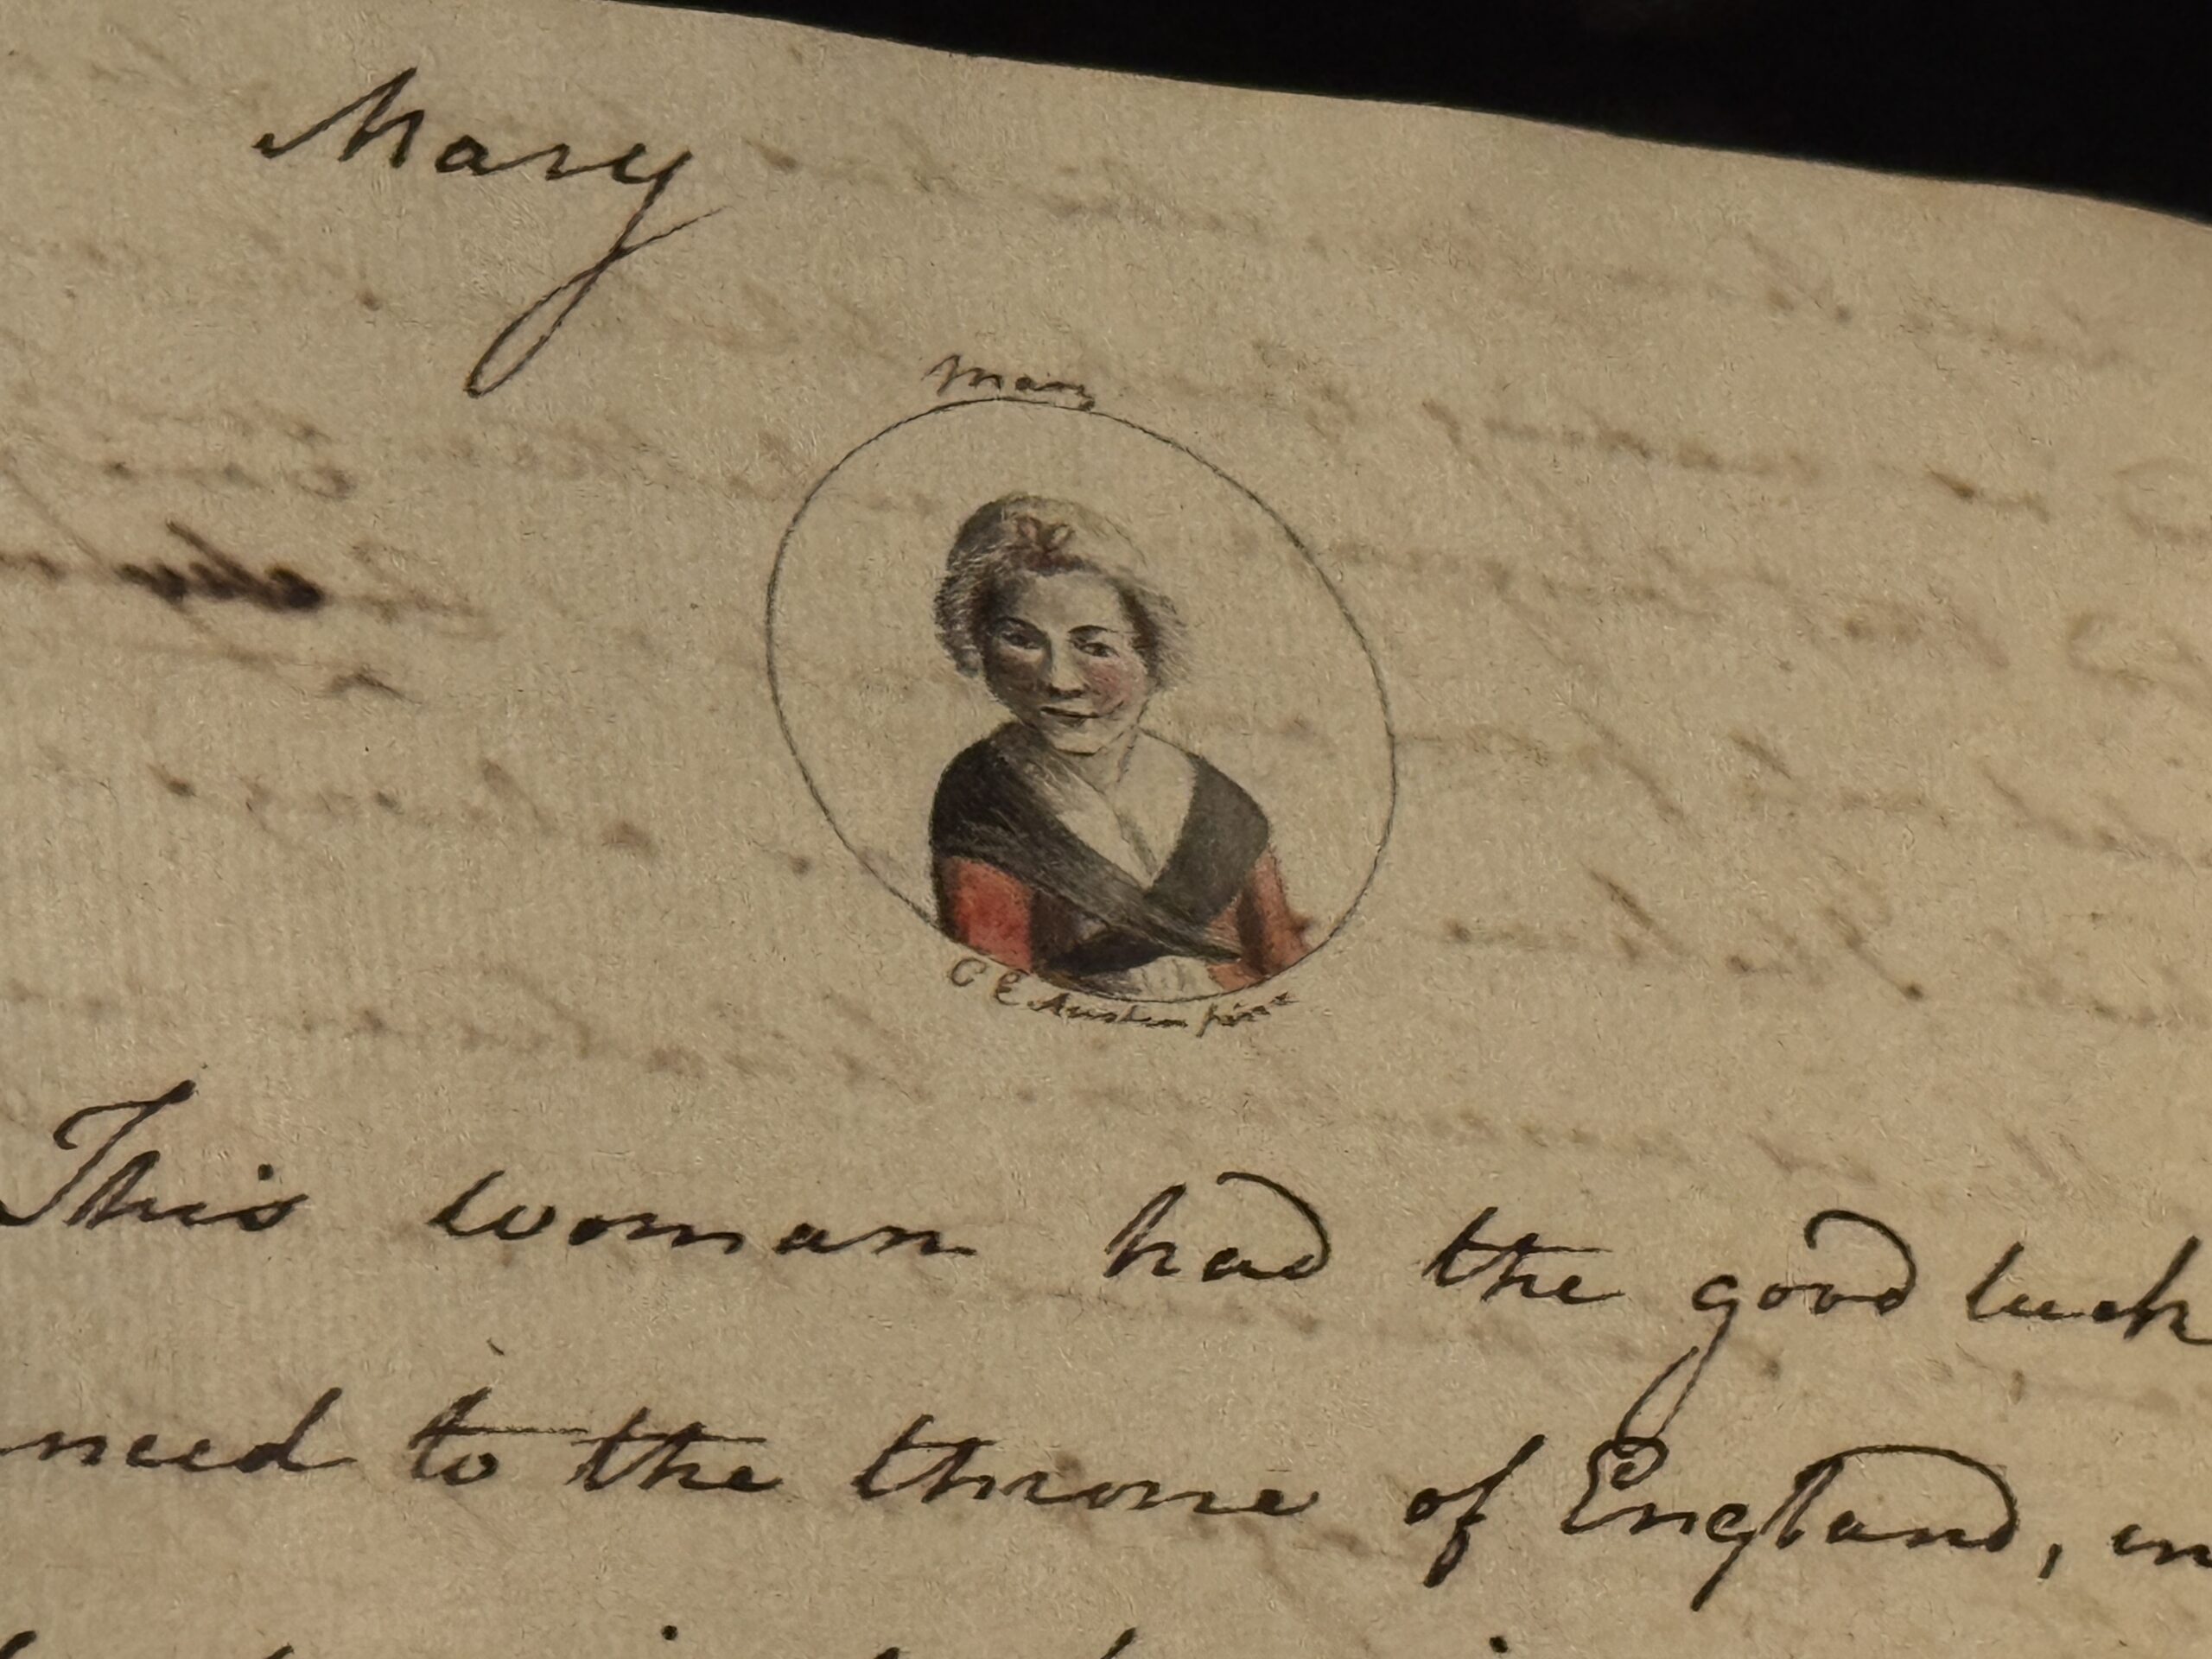 Mary
Mary
C E Austen pinxt
This woman had the good luck
nced to the throne of England, in